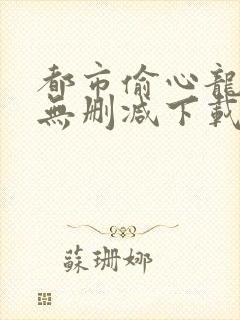 都市偷心龍
無刪減下載
蘇珊娜